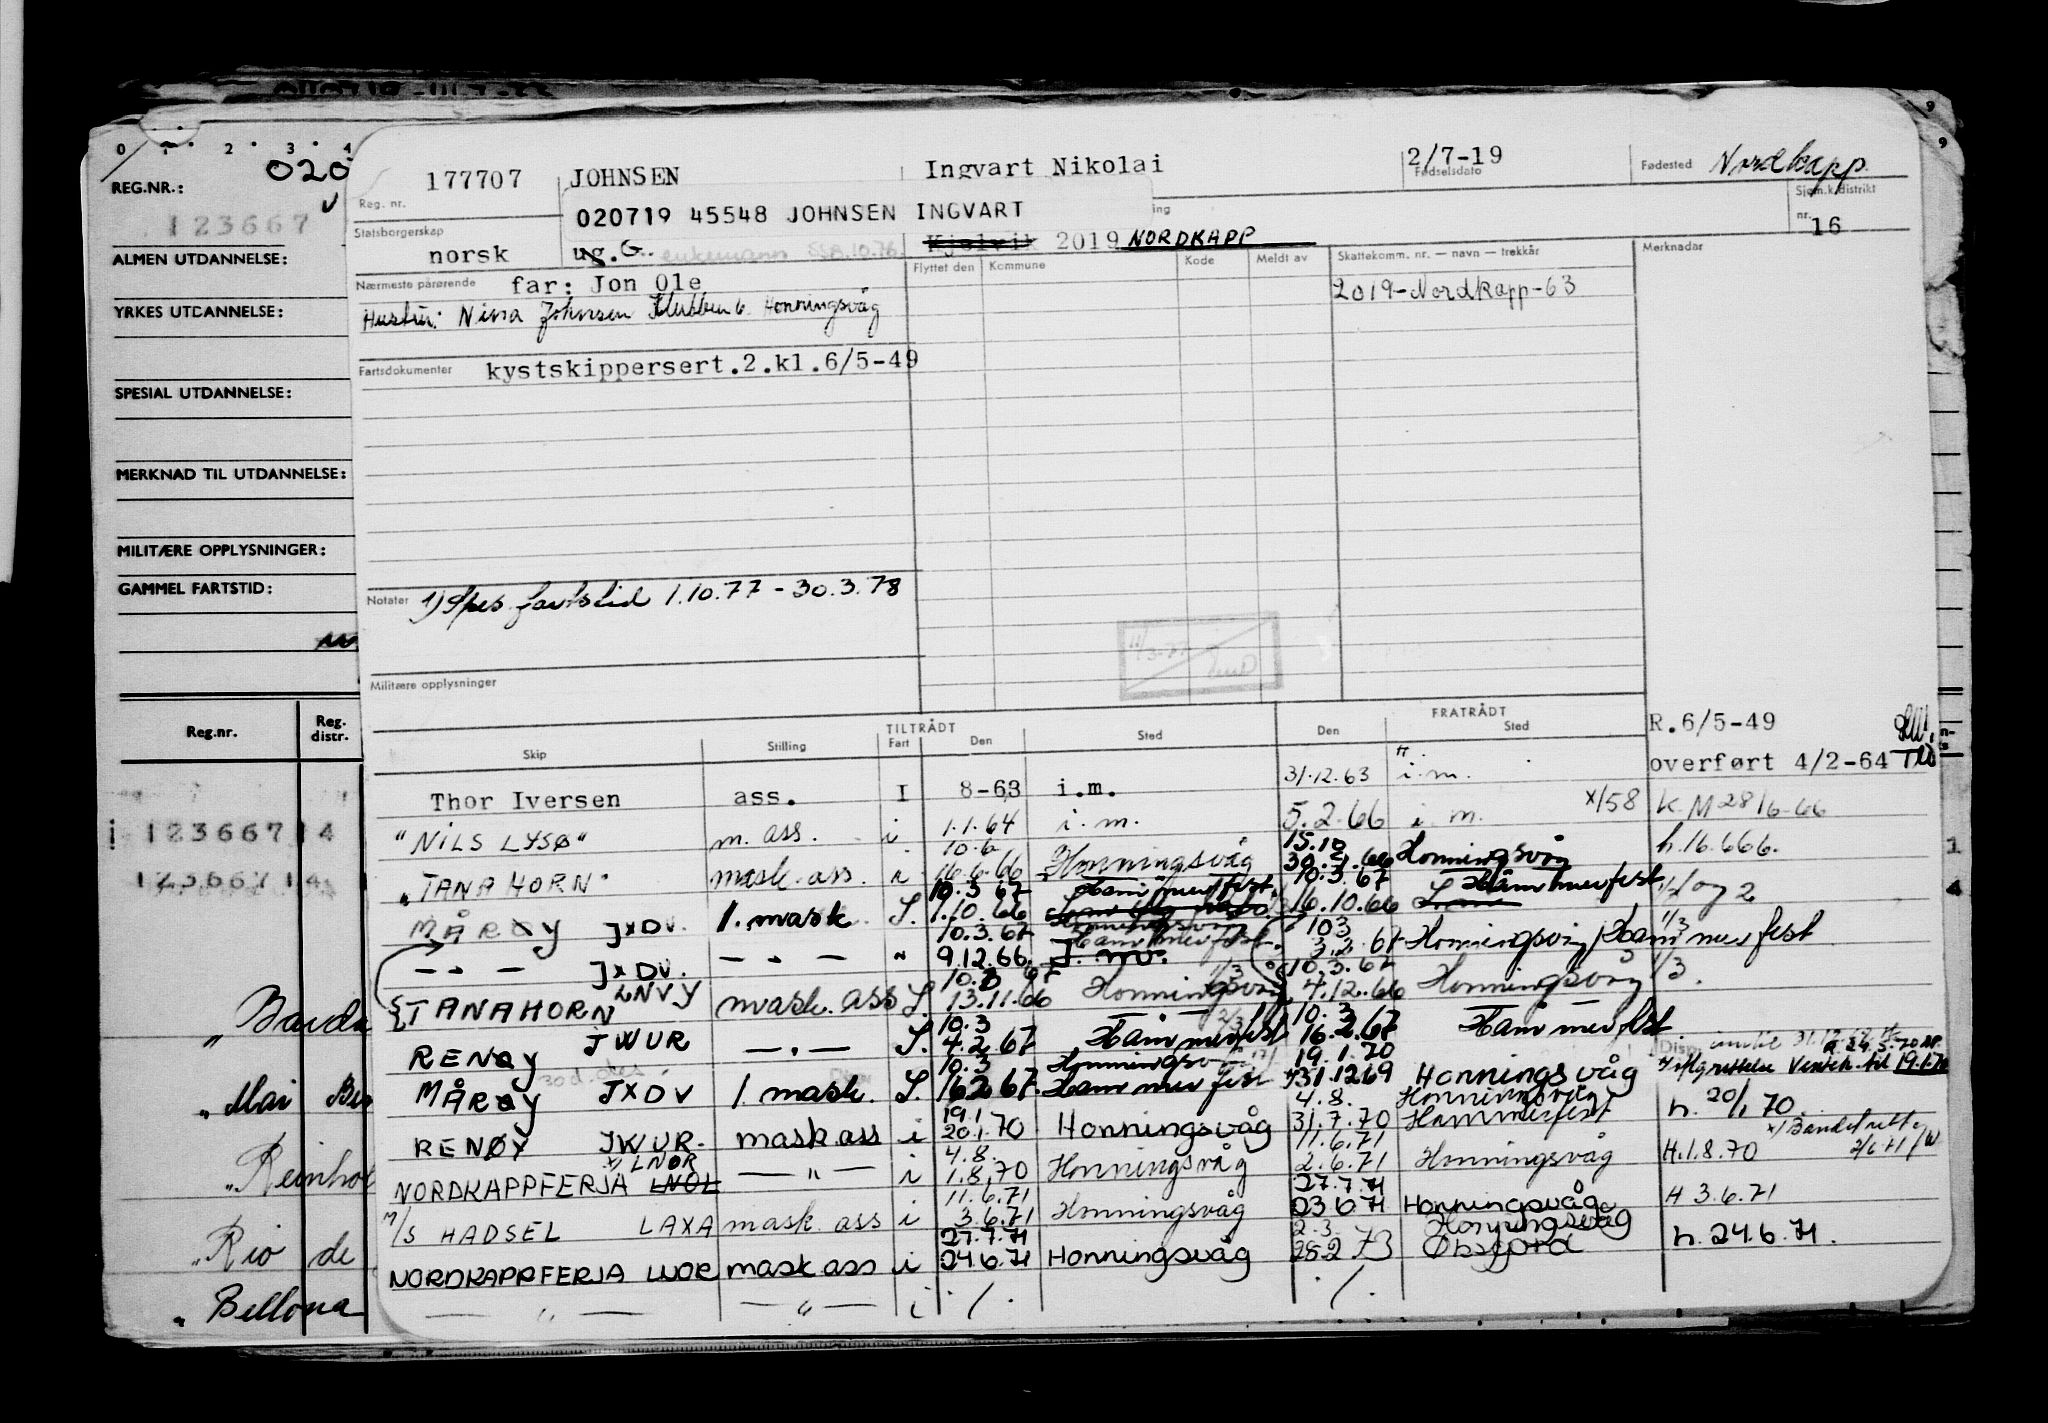 0 1 2 3 4
REG.NR.: 020
123667
ALMEN UTDANNELSE:
YRKES UTDANNELSE:
SPESIAL UTDANNELSE:
MERKNAD TIL UTDANNELSE:
MILITÆRE OPPLYSNINGER:
GAMMEL FARTSTID:
Reg.nr. Reg. distr.
123667 14
123667 14
Rio de
Bellona
Reg. nr. 177707 JOHNSEN Ingvart Nikolai 2/7-19 Fødselsdato Fødested Nordkapp.
020719 45548 JOHNSEN INGVART
Sjøm.k.distrikt nr. 16
Statsborgerskap norsk ug. G. enkemann Kjelvik 2019 NORDKAPP
Nærmeste pårørende far: Jon Ole
Hustru: Nina Johnsen Klubben 6 Honningsvåg
Flyttet den Kommune Kode Meldt av Skattekomm. nr. — navn — trekkår Merknader
2019-Nordkapp-63
Fartsdokumenter kystskippersert.2.kl.6/5-49
Notater 1) Spes. fartstid 1.10.77 - 30.3.78
Militære opplysninger
TILTRÅDT FRATRÅDT
Skip Stilling Fart Den Sted Den Sted
R.6/5-49
overført 4/2-64
Thor Iversen ass. I 8-63 i.m. 31.12.63 i.m.
"NILS LYSØ" m. ass. i 1.1.64 i.m. 5.2.66 i.m. x/58 K.M 28/6-66
10.6 15.10
"TANAHORN" mask. ass. i 16.6.66 Honningsvåg 30.9.66 Honningsvåg h.16.666.
10.3.67 Hammerfest 10.3.67 Hammerfest
MÅRØY JXDV. 1. mask. S. 1.10.66 16.10.66 1/ og 2
10.3.67 Hammerfest 10.3
— " — JXDV. — " — " 9.12.66. I. m. 3.2.67 Honningsvåg Hammerfest
10.3.67 10.3.67
TANAHORN LNVY mask. ass S. 13.11.66 Honningsvåg 4.12.66 Honningsvåg 1/3.
10.3 10.3
RENØY JWUR — " — S. 4.2.67 Hammerfest 16.2.67 Hammerfest
10.3 Honningsvåg 19.1.70
MÅRØY JXDV 1. mask. S. 16.2.67. Hammerfest 31.12.69 Honningsvåg
19.1 4.8. Honningsvåg
RENØY JWUR. mask ass i 20.1.70 Honningsvåg 31.7.70 Hammerfest h. 20/1 70.
4.8. 11.6.71
NORDKAPPFERJA LNOR LNOL — " — i 1.8.70 Honningsvåg 2.6.71 Honningsvåg H.1.8.70
11.6.71 27.7.71
M/S HADSEL LAXA mask. ass i 3.6.71 Honningsvåg 23.6.71 Honningsvåg H 3.6.71
27.7.71 2.3. Honningsvåg
NORDKAPPFERJA LNOR mask ass i 24.6.71 Honningsvåg 28.2.73 h. 24.6.71.
— " — — " — i ./. ./.